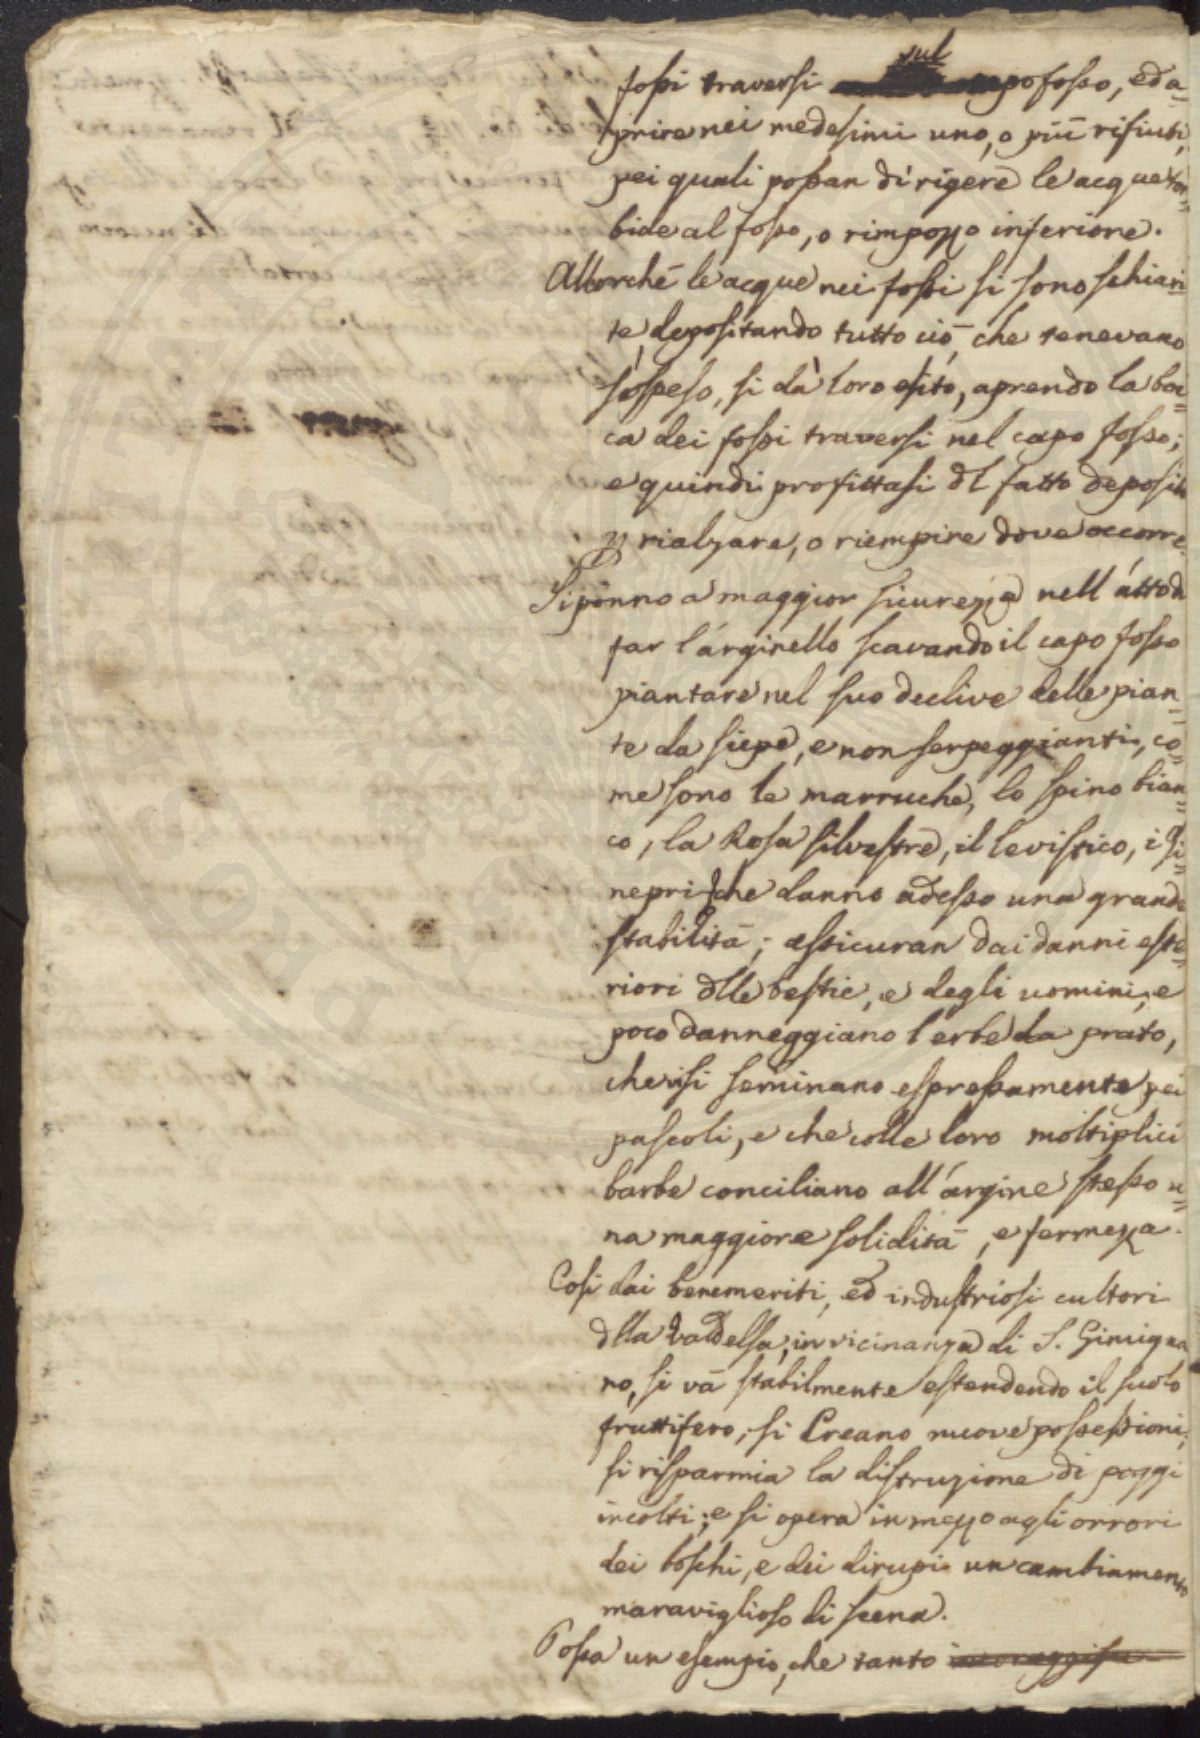 sul
fossi traversi pofosso, ed a=
prire nei medesimi uno, o più rifiuti,
pei quali possan dirigere le acque tor=
bide al fosso, o rimpozzo inferiore.
Allorché le acque nei fossi si sono schiari=
te, depositando tutto ciò, che tenevano
sospeso, si dà loro esito, aprendo la boc=
ca dei fossi traversi nel capo fosso;
e quindi profittasi dl fatto deposito
p rialzare, o riempire dove occorre.
Si ponno a maggior sicurezza nell'atto di
far l'arginello scavando il capo fosso
piantare nel suo declive delle pian=
te da siepe, e non serpeggianti, co=
me sono le marruche, lo spino bian=
co, la Rosa silvestre, il levistico, i gi=
nepri che danno adesso una grande
stabilità; assicuran dai danni este=
riori dlle bestie, e degli uomini, e
poco danneggiano l'erbe da prato,
che vi si seminano espressamente pei
pascoli, e che colle loro moltiplici
barbe conciliano all'argine stesso u=
na maggiore solidità, e fermezza.
Così dai benemeriti, ed industriosi cultori
dlla Valdelsa, in vicinanza di S. Gimigna=
no, si và stabilmente estendendo il suolo
fruttifero; si Creano nuove possessioni;
si risparmia la distruzione di poggi
incolti; e si opera in mezzo agli orrori
dei boschi, e dei dirupi un cambiamento
maraviglioso di scena.
Possa un esempio, che tanto